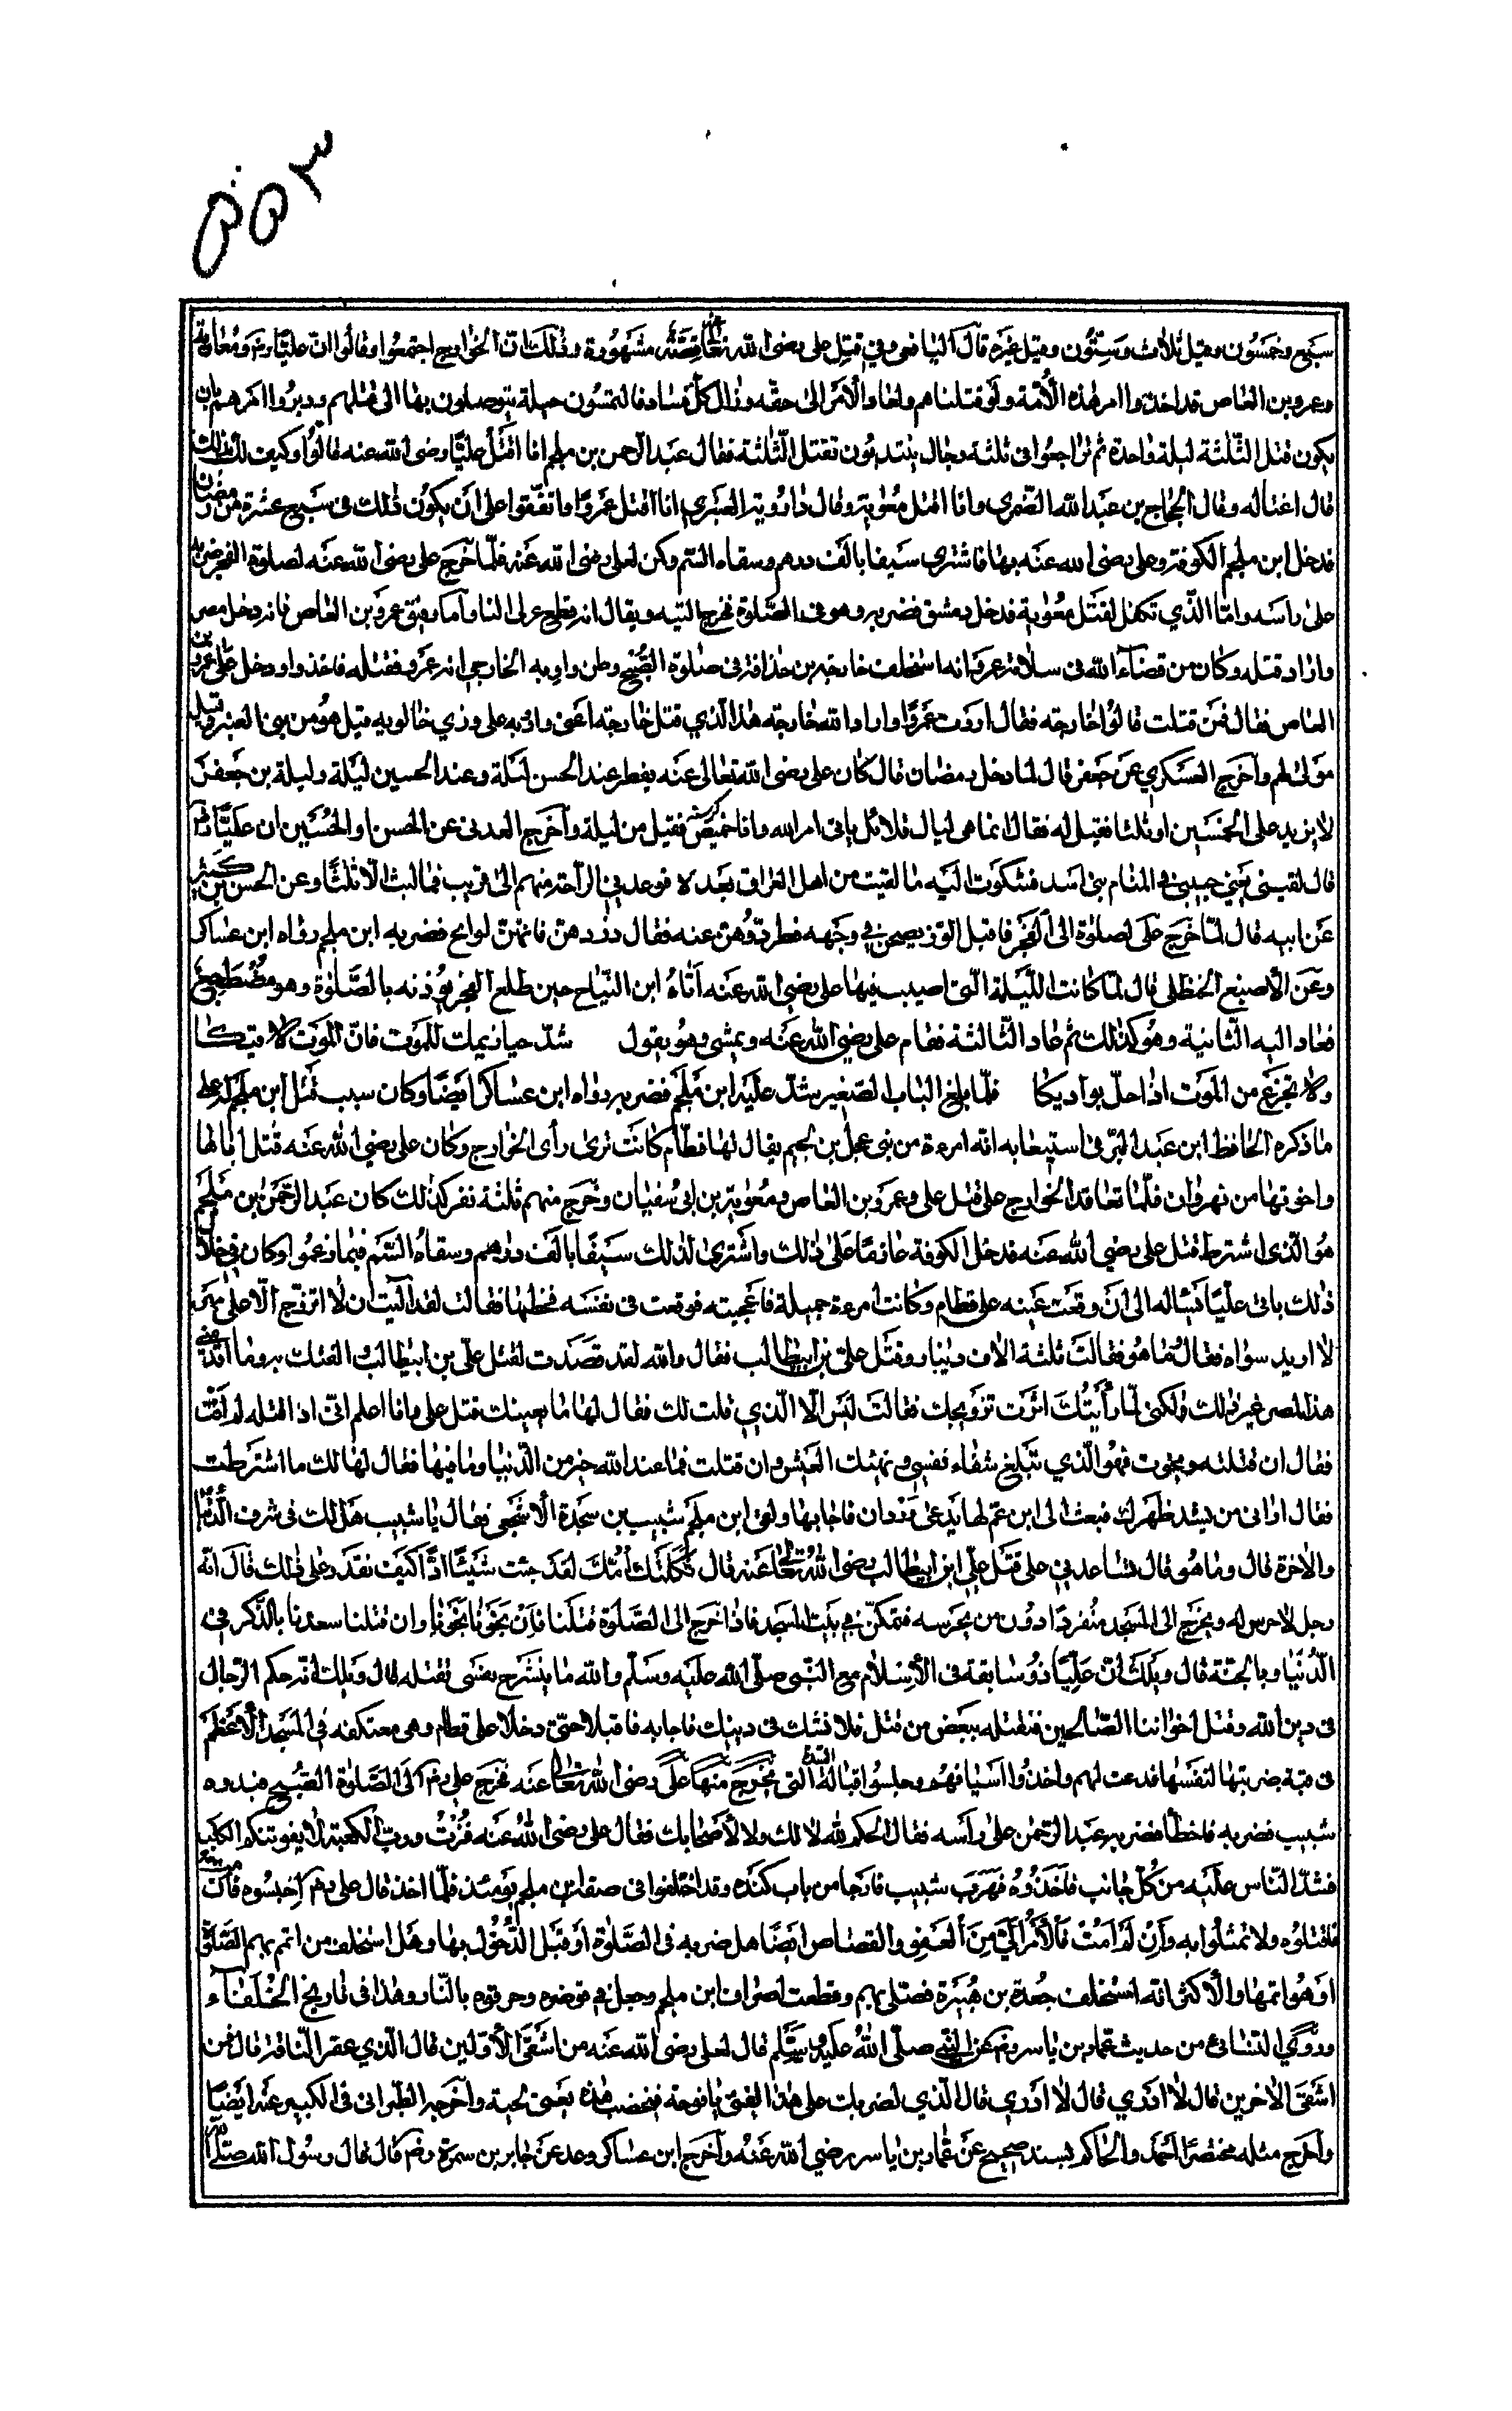 ۵۵۳
سبع وخمسون وقيل ثلاث وستون وقيل غيره قال اليافعي وفي قتل علي رضى الله تعالى عنه قصة مشهورة وذلك ان الخوارج اجتمعوا وقالوا ان عليا رض ومعاوية
وعمرو بن العاص قد اخذوا امر هذه الأمة ولو قتلناهم ولعاد الأمر الى حقه وزال كل فساد فالتمسون حيلة يتوصلون بها الى قتلهم ودبروا امرهم بان
يكون قتل الثلثة ليلة واحدة ثم تراجعوا فى ثلثة رجال ينتدبون تقتل الثلثة فقال عبد الرحمن بن ملجم انا اقتل عليا رضى الله عنه قالوا وكيف لك بذلك
قال اغتاله وقال الحجاج بن عبد الله الضمرى وانا اقتل معوية وقال داذوية العنبري انا اقتل عمروا واتفقوا على ان يكون ذلك فى سبع عشرة من رمضان
فدخل ابن ملجم الكوفة وعلى رضى الله عنه بها فاشترى سيفا بالف درهم وسقاه السم وكمن لعلى رضى الله عنه فلما خرج على رضى الله عنه لصلوة الفجر ضربه
على راسه واما الذي تكفل لقتل معوية فدخل دمشق فضربه وهو فى الصلوة فجرح اليته ويقال انه قطع عرق النسا واما رفيق عمرو بن العاص فانه دخل مصر
واراد قتله وكان من قضاء الله فى سلامة عمرو انه استخلف خارجة بن حذافة فى صلوة الصبح وظن داويه الخارجى انه عمرو فقتله فاخذوا ودخل على عمرو بن
العاص فقال فمن قتلت قالوا خارجه فقال اردت عمروا واراد الله خارجه هذا الذي قتل خارجه اعنى واذويه على وزن خالويه قيل هو من بنى العنبر وقيل
مولى لهم وأخرج العسكري عن جعفر قال لما دخل رمضان قال كان على رضى الله تعالى عنه يفطر عند الحسن ليلة وعند الحسين ليلة وليلة بن جعفر
لا يزيد على الخمسين او ثلثا فقيل له فقال انما هى ليال قلائل ياتى امر الله وانا خميص فقيل من ليلة وأخرج العدنى عن الحسن او الحسين ان عليا رض
قال لقينى يعني حبيبي في المنام بنى اسد فشكوت اليه ما لقيت من اهل العراق بعده فوعدني الراحة منهم الى قريب فما لبث الا ثلثا وعن الحسن بن كثير
عن ابيه قال لما خرج على لصلوة الى الفجر فاقبل الوز يصحن في وجهه فطردوهن عنه فقال ذروهن فانهن لوائح فضربه ابن ملجم رواه ابن عساكر
وعن الأصبغ الحنظلى قال لما كانت الليلة التى اصيب فيها على رضى الله عنه اتاه ابن النياح حين طلع الفجر يؤذنه بالصلوة وهو مضطجع
فعاد اليه الثانية وهو كذلك ثم عاد الثالثة فقام على رضي الله عنه ويمشى وهو يقول شد حيازيمك للموت فان الموت لاقيكا
ولا تجزع من الموت اذا حل بواديكا فلما بلغ الباب الصغير شد عليه ابن ملجم فضربه رواه ابن عساكر ايضا وكان سبب قتل ابن ملجم له على
ما ذكره الحافظ ابن عبد البر فى استيعابه انه امرءة من بنى عجل بن لجيم يقال لها قطام كانت ترى رأى الخوارج وكان على رضي الله عنه قتل اباها
واخوتها من نهروان فلما تعاقد الخوارج على قتل على وعمرو بن العاص ومعوية بن ابى سفيان وخرج منهم ثلثة نفر كذلك كان عبد الرحمن بن ملجم
هو الذى اشترط قتل على رضي الله عنه فدخل الكوفة عازما على ذلك واشترى لذلك سيفا بالف درهم وسقاه السم فيما زعموا وكان في خلال
ذلك ياتى عليا فيساله الى ان وقعت عينه على قطام وكانت امرءة جميلة فاعجبته فوقعت فى نفسه فخطبها فقالت لقد آليت ان لا اتزوج الا على مهر
لا اريد سواه فقال ما هو فقالت ثلثة الاف دينار وقتل على بن ابيطالب فقال والله لقد قصدت لقتل على بن ابيطالب والفتك به وما اقدمني
هذا المصر غير ذلك ولكنى لما رأيتك اثرت تزويجك فقالت ليس الا الذي قلت لك فقال لها ما يعينك قتل على وانا اعلم انى اذا قتلته لم افت
فقال ان قتلته ونجوت فهو الذي تبلغ شفاء نفسي ويهنئك العيش وان قتلت فما عند الله خير من الدنيا وما فيها فقال لها لك ما اشترطت
فقال اوانى من يشد ظهرك فبعث الى ابن عم لها يدعى وردان فاجابها ولقى ابن ملجم شبيب بن سجدة الأشجعى فقال يا شبيب هل لك فى شرف الدنيا
والاخرة قال وما هو قال تساعدني على قتل على ابن ابيطالب رضى الله تعالى عنه قال ثكلتك أمك لقد جئت شيئا ادا كيف نقدر على ذلك قال انه
رجل لا حرس له ويخرج الى المسجد منفردا دون من يحرسه فتمكن في بيت المسجد فاذا خرج الى الصلوة قتلنا فان نجونا نجونا وان قتلنا سعدنا بالذكر فى
الدنيا وبالجنة قال ويلك ان عليا ذو سابقة فى الأسلام مع النبى صلى الله عليه وسلم والله ما ينشرح نفسى بقتله قال ويلك انه حكم الرجال
فى دين الله وقتل اخواننا الصالحين فنقتله ببعض من قتل فلا تشك فى دينك فاجابه فاقبلا حتى دخلا على قطام وهى معتكفه في المسجد الأعظم
فى قبة ضربتها لنفسها فدعت لهم واخذوا اسيافهم وجلسوا قبالة السدة التى يخرج منها على رضى الله تعالى عنه فخرج على رض الى الصلوة الصبح فبدره
شبيب فضربه فاخطأ فضربه عبد الرحمن على رأسه فقال الحكم لله لا لك ولا لأصحابك فقال على رضى الله عنه فزت ورب الكعبة لا يفوتنكم الكلب
فشد الناس عليه من كل جانب فاخذوه فهرب شبيب خارجا من باب كنده وقد اختلفوا فى صفة ابن ملجم يومئذ فلما اخذ قال على رض احبسوه فان مت
فاقتلوه ولا تمثلوا به وان لم امت فالأمر الى من العفو والقصاص ايضا هل ضربه فى الصلوة او قبل الدخول بها وهل استخلف من اتم بهم الصلوة
او هو اتمها والأكثر انه استخلف جعدة بن هبيرة فصلى بهم وقطعت اطراف ابن ملجم وجعل فى قوصره وحرقوه بالنار وهذا فى تاريخ الخلفاء
وروي النسائى من حديث عمار بن ياسر رض عن النبي صلى الله عليه وسلم قال لعلى رضى الله عنه من اشقى الأولين قال الذي عقر الناقة قال فمن
اشقى الاخرين قال لا ادري قال لا ادري قال الذي لضربك على هذا يعنى يافوخه فيخضب هذه يعنى لحيته وأخرجه الطبرانى فى الكبير عنه ايضا
وأخرج مثله مختصرا احمد والحاكم بسند صحيح عن عمار بن ياسر رضي الله عنه وأخرج ابن عساكر وعد عن جابر بن سمرة رض قال قال رسول الله صلى الله